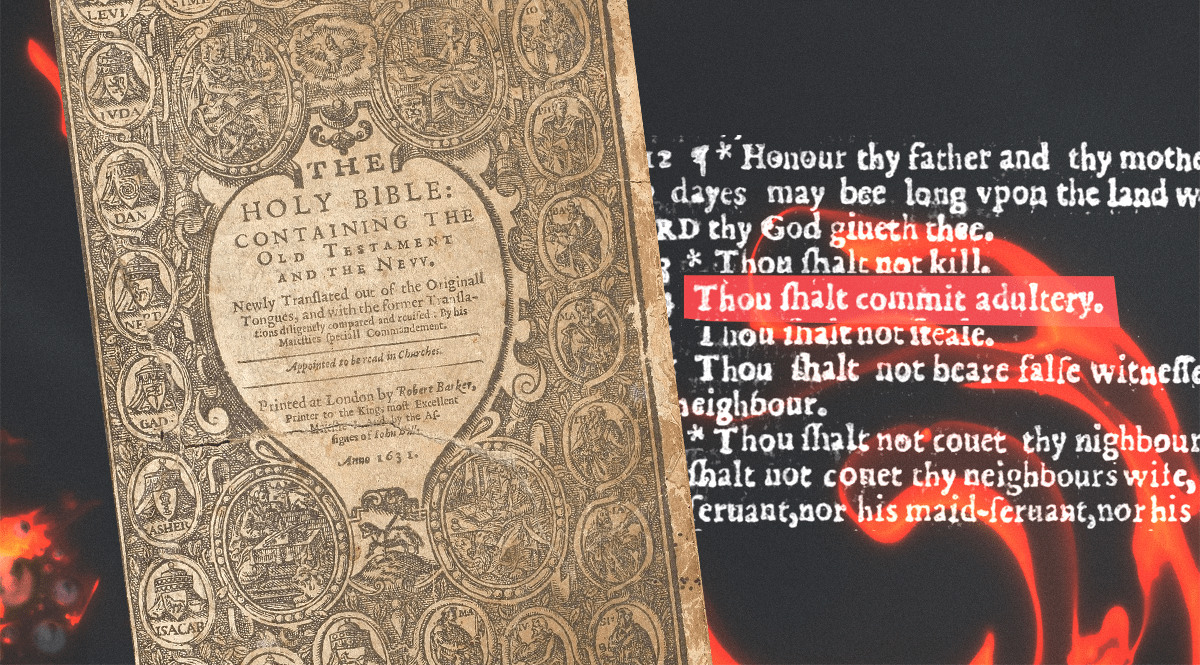 LEVI
IVDA
DAN
NEPT
GAD
ASHER
ISACAR
THE
HOLY BIBLE:
CONTAINING THE
OLD TESTAMENT
AND THE NEVV.
Newly Tranſlated out of the Originall
Tongues, and with the former Tranſla-
tions diligently compared and reuiſed : By his
Maieſties ſpeciall Commandement.
Appointed to be read in Churches.
Printed at London by Robert Barker,
Printer to the Kings moſt Excellent
Maieſtie : and by the Aſ-
ſignes of Iohn Bill.
Anno 1631.
12 ¶ * Honour thy father and thy mothe
dayes may bee long vpon the land w
RD thy God giueth thee.
* Thou ſhalt not kill.
Thou ſhalt commit adultery.
Thou ſhalt not ſteale.
Thou ſhalt not beare falſe witneſſe
neighbour.
* Thou ſhalt not couet thy nighbour
ſhalt not couet thy neighbours wife,
ſeruant, nor his maid-ſeruant, nor his